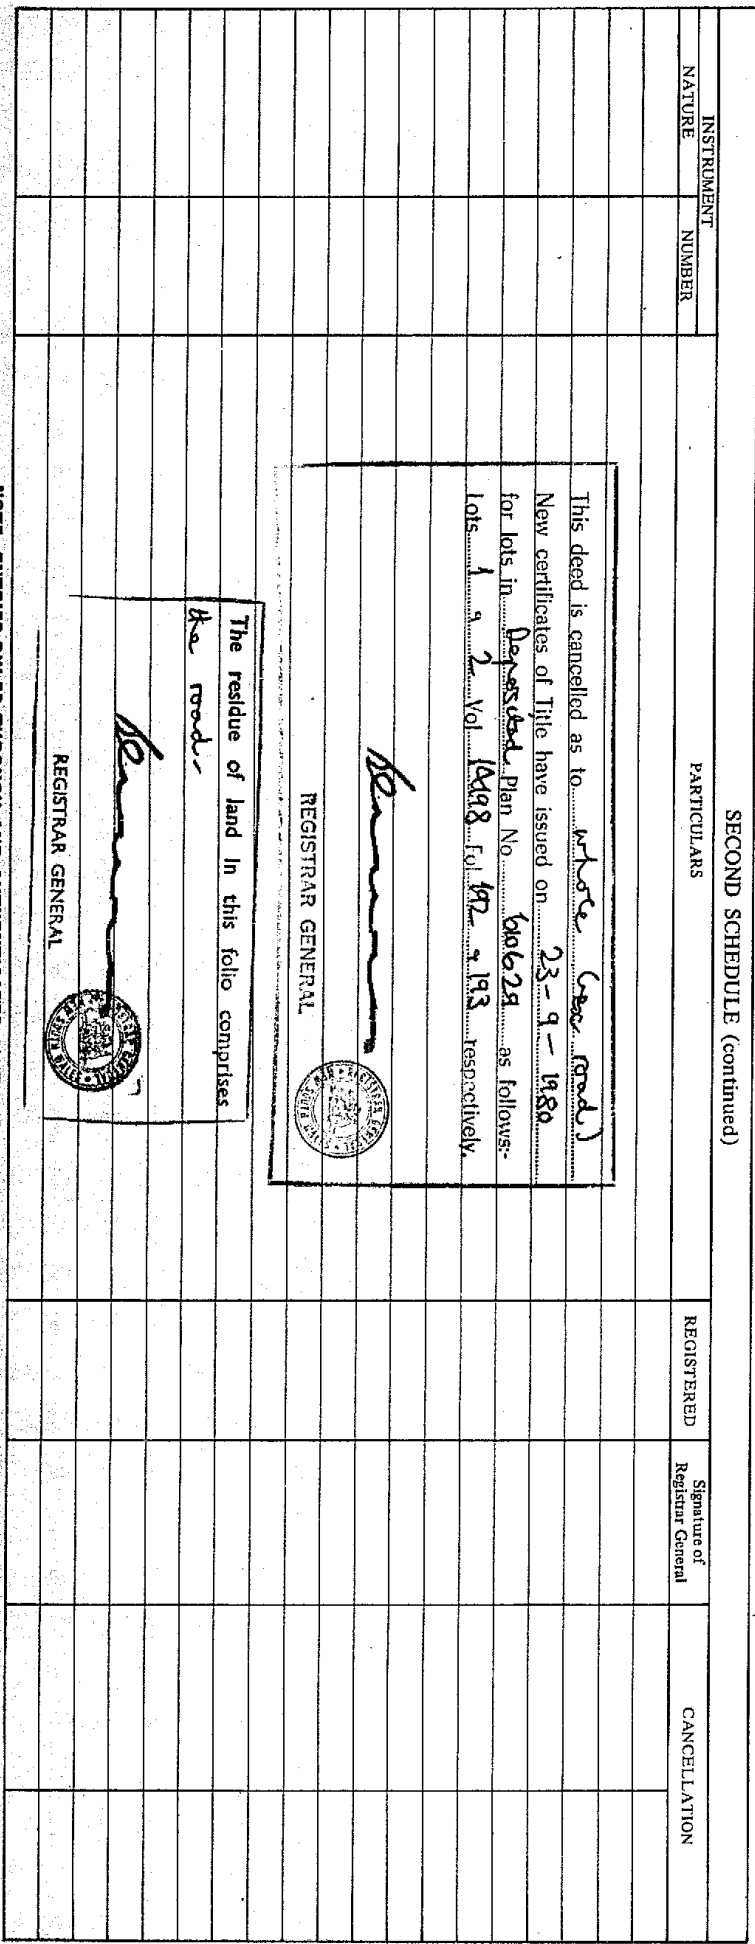 SECOND SCHEDULE (continued)
INSTRUMENT
NATURE
NUMBER
PARTICULARS
REGISTERED
Signature of
Registrar General
CANCELLATION
This deed is cancelled as to whole (exc road)
New certificates of Title have issued on 23-9-1980
for lots in Deposited Plan No 610629 as follows:-
Lots 1 & 2 Vol 14198 Fol 192 & 193 respectively.
REGISTRAR GENERAL
The residue of land in this folio comprises
the road-
REGISTRAR GENERAL